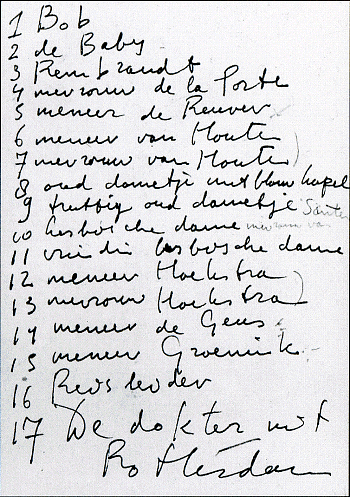 1 Bob
2 de Baby
3 Rembrandt
4 mevrouw de la Porte
5 meneer de Reuver
6 meneer van Houten
7 mevrouw van Houten
8 oud dametje met blauw kapel
9 pruttig oud dametje
10 lesbische dame mevrouw van
11 vriendin lesbische dame
12 meneer Hoekstra
13 mevrouw Hoekstra
14 meneer de Geus
15 meneer Groenink
16 Reisleider
17 De dokter uit
Rotterdam